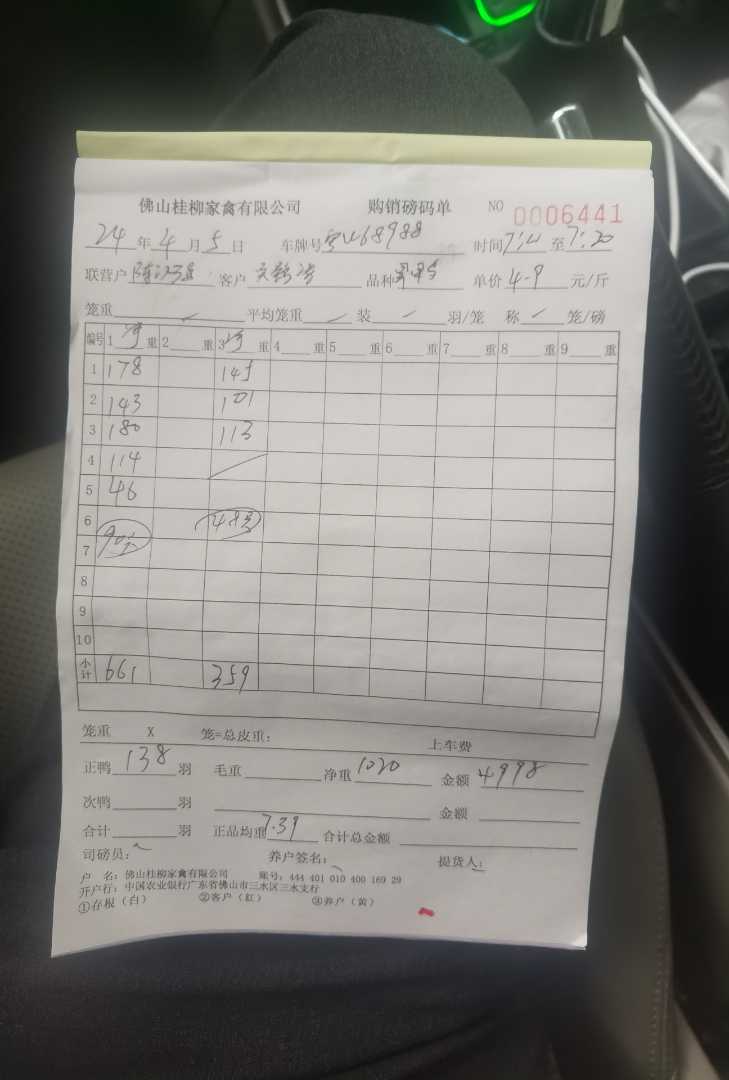 佛山桂柳家禽有限公司 购销磅码单 NO 0006441
24年4月5日 车牌号 68988 时间 7:11 至 7:20
联营户 客户 品种 单价 4.9 元/斤
笼重 平均笼重 装 羽/笼 称 笼/磅
编号 1 净重 2 重 3 净重 4 重 5 重 6 重 7 重 8 重 9 重
1 178 145
2 143 101
3 180 113
4 114
5 46
6 48羽
7 90羽
8
9
10
小计 661 359
笼重 X 笼=总皮重: 上车费
正鸭 138 羽 毛重 净重 1020 金额 4998
次鸭 羽 金额
合计 羽 正品均重 7.39 合计总金额
司磅员: 养户签名: 提货人:
户 名: 佛山桂柳家禽有限公司 账号: 444 401 010 400 169 29
开户行: 中国农业银行广东省佛山市三水区三水支行
①存根(白) ②客户(红) ③养户(黄)